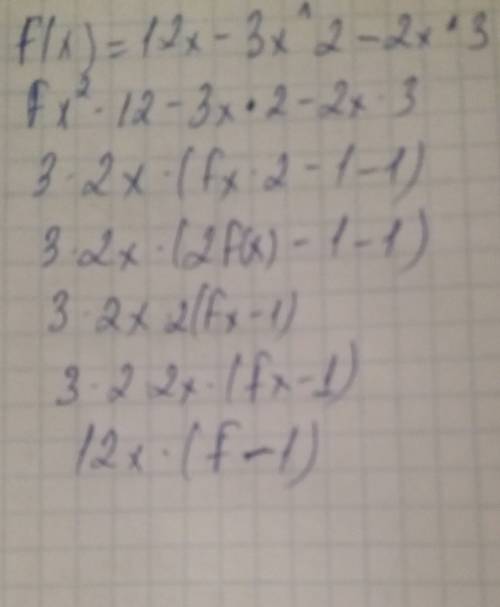 F(x) = 12x - 3x^2 - 2x^3
Fx² · 12 - 3x · 2 - 2x · 3
3 · 2x · (fx · 2 - 1 - 1)
3 · 2x · (2f(x) - 1 - 1)
3 · 2x 2(fx - 1)
3 · 2 2x · (fx - 1)
12x · (f - 1)